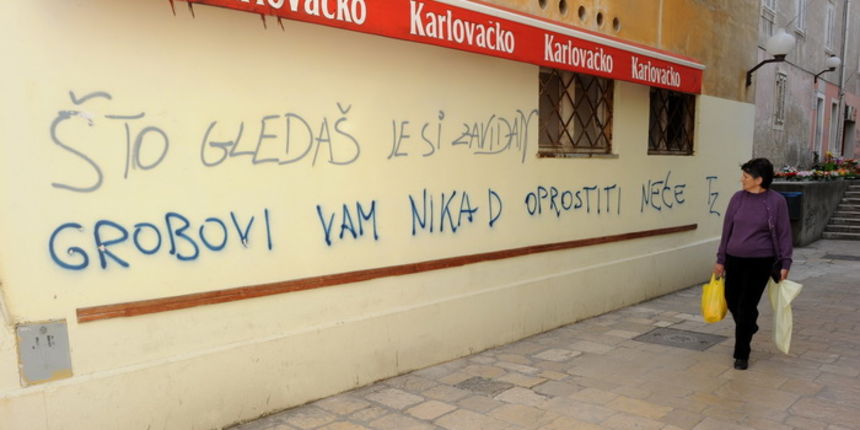 Karlovačko Karlovačko Karlovačko Karlovačko
ŠTO GLEDAŠ JE SI ZAVIDAN
GROBOVI VAM NIKAD OPROSTITI NEĆE TZ